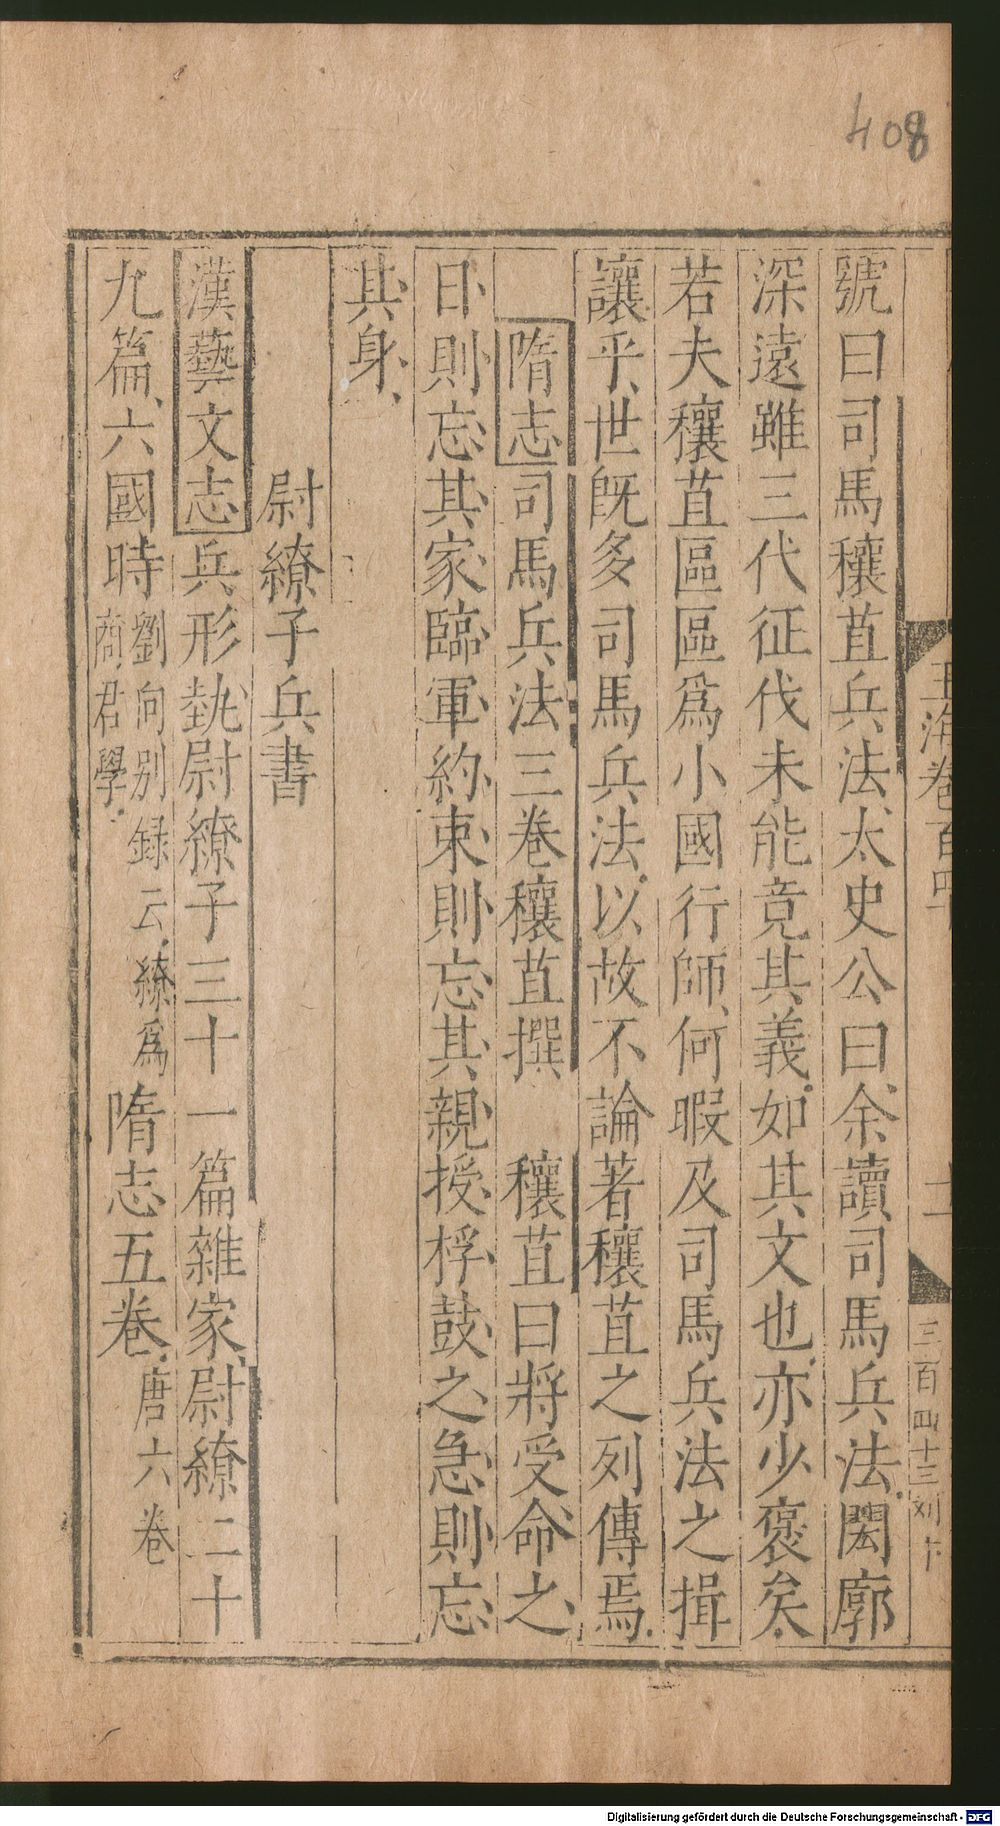 408
玉海卷百四十
二
三百四十三刘卞
號曰司馬穰苴兵法太史公曰余讀司馬兵法閎廓
深遠雖三代征伐未能竟其義如其文也亦少褒矣
若夫穰苴區區爲小國行師何暇及司馬兵法之揖
讓乎世旣多司馬兵法以故不論著穰苴之列傳焉
隋志司馬兵法三卷穰苴撰 穰苴曰將受命之
日則忘其家臨軍約束則忘其親授桴鼓之急則忘
其身
尉繚子兵書
漢藝文志兵形埶尉繚子三十一篇雜家尉繚二十
九篇六國時劉向別録云繚爲商君學隋志五卷唐六卷
Digitalisierung gefördert durch die Deutsche Forschungsgemeinschaft - DFG